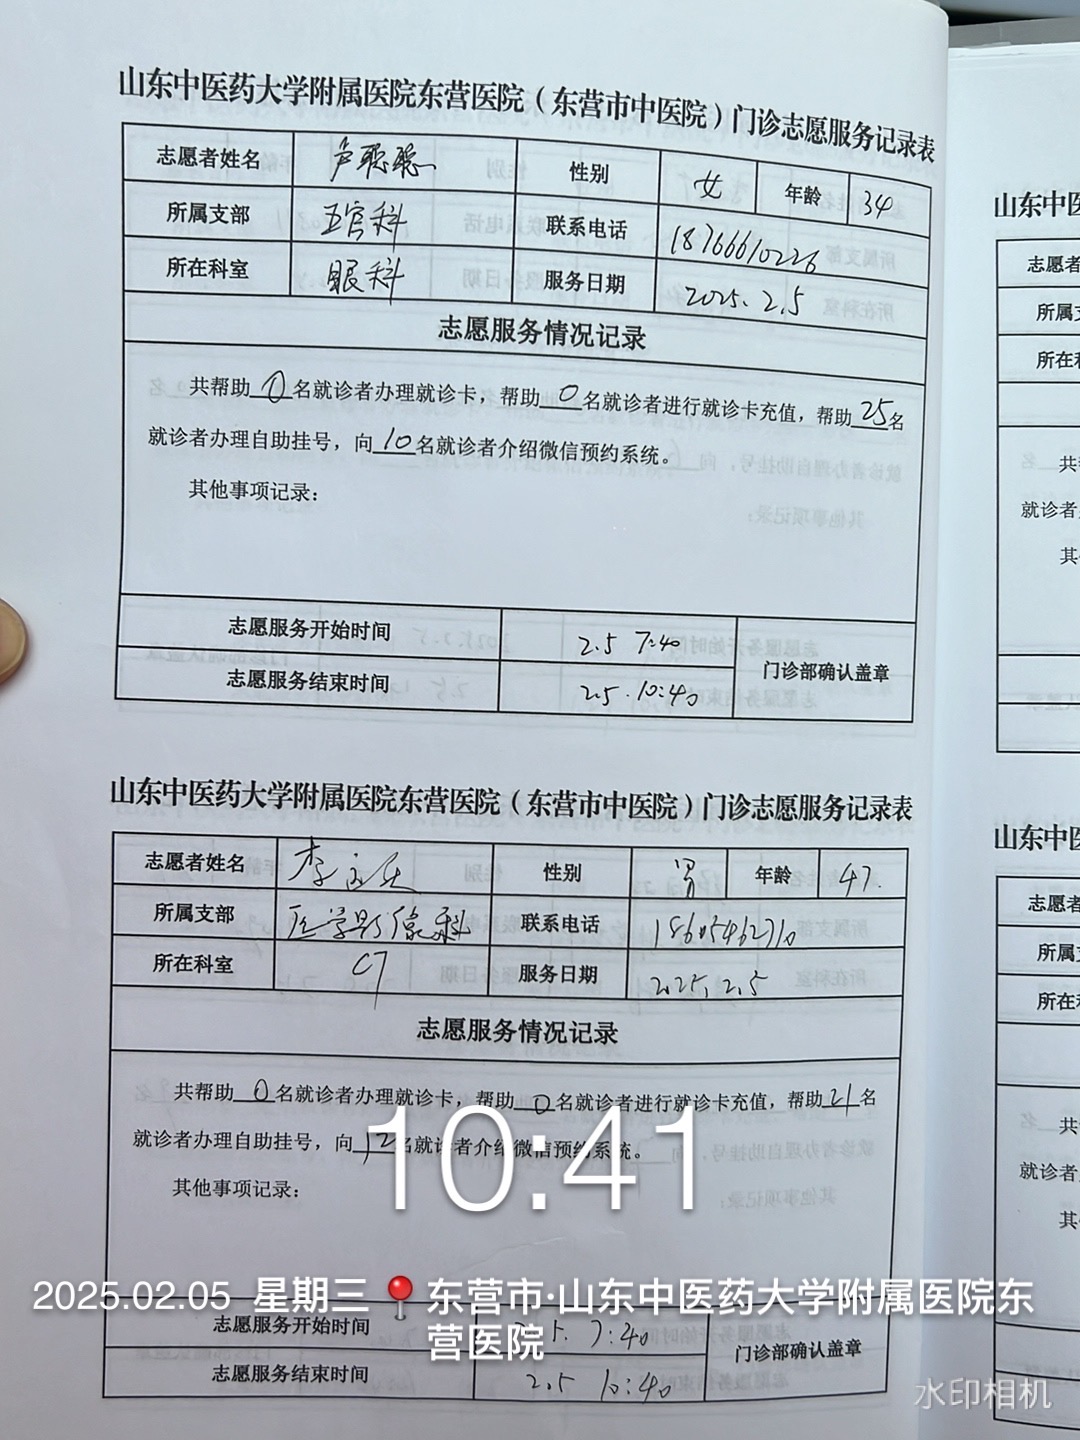 山东中医药大学附属医院东营医院（东营市中医院）门诊志愿服务记录表
志愿者姓名 卢聪聪 性别 女 年龄 34
所属支部 五官科 联系电话 18766610226
所在科室 眼科 服务日期 2025.2.5
志愿服务情况记录
共帮助0名就诊者办理就诊卡，帮助0名就诊者进行就诊卡充值，帮助25名
就诊者办理自助挂号，向10名就诊者介绍微信预约系统。
其他事项记录：
志愿服务开始时间 2.5 7:40
门诊部确认盖章
志愿服务结束时间 2.5 10:40
山东中医药大学附属医院东营医院（东营市中医院）门诊志愿服务记录表
志愿者姓名 李 性别 男 年龄 47.
所属支部 医学影像科 联系电话 18605462710
所在科室 CT 服务日期 2025.2.5
志愿服务情况记录
共帮助0名就诊者办理就诊卡，帮助0名就诊者进行就诊卡充值，帮助21名
就诊者办理自助挂号，向12名就诊者介绍微信预约系统。
其他事项记录：
10:41
2025.02.05 星期三 东营市·山东中医药大学附属医院东
营医院
志愿服务开始时间 2.5. 7:40
门诊部确认盖章
志愿服务结束时间 2.5 10:40
水印相机
山东中医
志愿者
所属支
所在科
共
就诊者
其
山东中医
志愿者
所属支
所在科
共
就诊者
其